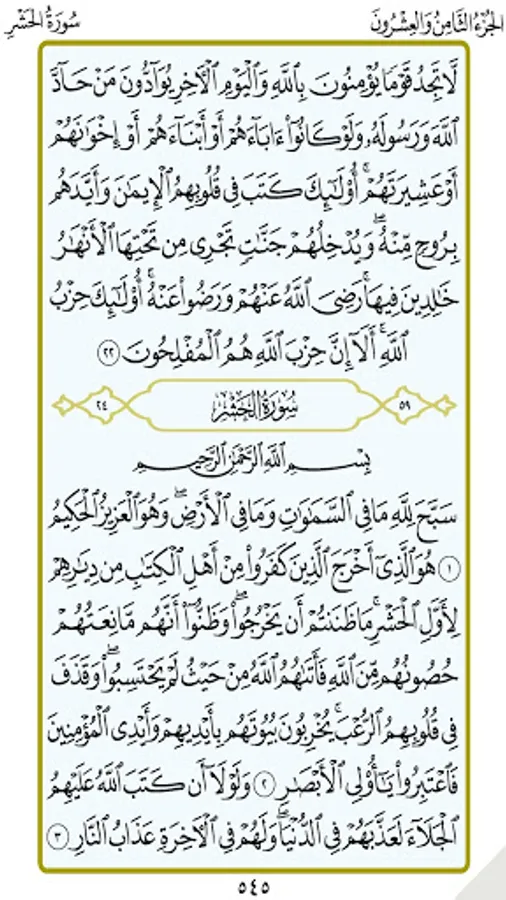 الجُزْءُ الثَّامِنُ وَالعِشْرُونَ سُورَةُ الحَشْرِ
لَّا تَجِدُ قَوْمًا يُؤْمِنُونَ بِٱللَّهِ وَٱلْيَوْمِ ٱلْءَاخِرِ يُوَآدُّونَ مَنْ حَآدَّ
ٱللَّهَ وَرَسُولَهُۥ وَلَوْ كَانُوٓا۟ ءَابَآءَهُمْ أَوْ أَبْنَآءَهُمْ أَوْ إِخْوَٰنَهُمْ
أَوْ عَشِيرَتَهُمْ ۚ أُو۟لَٰٓئِكَ كَتَبَ فِى قُلُوبِهِمُ ٱلْإِيمَٰنَ وَأَيَّدَهُم
بِرُوحٍ مِّنْهُ ۖ وَيُدْخِلُهُمْ جَنَّٰتٍ تَجْرِى مِن تَحْتِهَا ٱلْأَنْهَٰرُ
خَٰلِدِينَ فِيهَا ۚ رَضِىَ ٱللَّهُ عَنْهُمْ وَرَضُوا۟ عَنْهُ ۚ أُو۟لَٰٓئِكَ حِزْبُ
ٱللَّهِ ۚ أَلَآ إِنَّ حِزْبَ ٱللَّهِ هُمُ ٱلْمُفْلِحُونَ ٢٢
٥٩ سُورَةُ الحَشْرِ ٢٤
بِسْمِ ٱللَّهِ ٱلرَّحْمَٰنِ ٱلرَّحِيمِ
سَبَّحَ لِلَّهِ مَا فِى ٱلسَّمَٰوَٰتِ وَمَا فِى ٱلْأَرْضِ ۖ وَهُوَ ٱلْعَزِيزُ ٱلْحَكِيمُ
١ هُوَ ٱلَّذِىٓ أَخْرَجَ ٱلَّذِينَ كَفَرُوا۟ مِنْ أَهْلِ ٱلْكِتَٰبِ مِن دِيَٰرِهِمْ
لِأَوَّلِ ٱلْحَشْرِ ۚ مَا ظَنَنتُمْ أَن يَخْرُجُوا۟ ۖ وَظَنُّوٓا۟ أَنَّهُم مَّانِعَتُهُمْ
حُصُونُهُم مِّنَ ٱللَّهِ فَأَتَىٰهُمُ ٱللَّهُ مِنْ حَيْثُ لَمْ يَحْتَسِبُوا۟ ۖ وَقَذَفَ
فِى قُلُوبِهِمُ ٱلرُّعْبَ ۚ يُخْرِبُونَ بُيُوتَهُم بِأَيْدِيهِمْ وَأَيْدِى ٱلْمُؤْمِنِينَ
فَٱعْتَبِرُوا۟ يَٰٓأُو۟لِى ٱلْأَبْصَٰرِ ٢ وَلَوْلَآ أَن كَتَبَ ٱللَّهُ عَلَيْهِمُ
ٱلْجَلَآءَ لَعَذَّبَهُمْ فِى ٱلدُّنْيَا ۖ وَلَهُمْ فِى ٱلْءَاخِرَةِ عَذَابُ ٱلنَّارِ ٣
٥٤٥